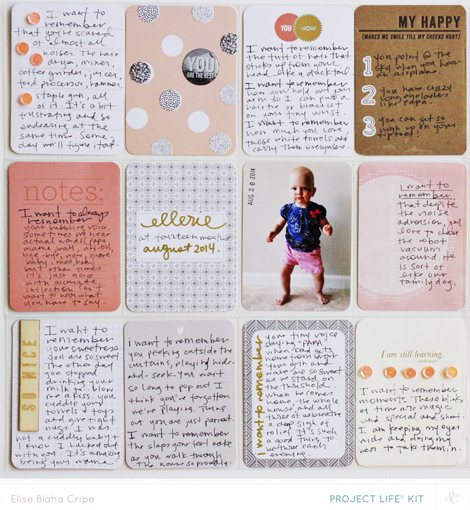 I want to
remember
that you're scared
of almost all
noises. The hair
dryer, mixer,
coffee grinder, juicer,
food processor, hammer,
staple gun, all
of it. It's a bit
frustrating and so
endearing at the
same time. Some
day we'll figure it out.
YOU
ARE THE BEST
YOU
NOW
I want to remember
the tuft of hair that
sticks up from your
head, like a duck tail
I want to remember
how you hold out your
arm so I can put a
hairtie or bracelet
on your tiny wrist
I want to remember
how much you love
those white towels and
carry them everywhere.
MY HAPPY
[MAKES ME SMILE TILL MY CHEEKS HURT]
1 you point @ the
sky when you hear
an airplane.
2 you have curly
long eyelashes
like papa.
3 you can get so
high up on your
tiptoes!
notes:
I want to always
remember
your babbling voice.
Sometimes we hear
actual words, papa
mama, wall, kitten
bye-bye, wow, more
baby, moo, baa,
but other times
it's just noise
with accurate
inflection. I can't
wait to know what
you have to say.
ellerie
at fourteen months
august 2014.
AUG 20 2014
I want to
remember
that despite
the noise
aversion, you
love to chase
the robot
vacuum
around. He
is sort of
like our
family dog.
SO NICE
I want to
remember
your sweetness
you are so sweet
The other day
you stopped
drinking your
milk to blow
me a kiss. You
cuddle your
towels & toys
and give tight
hugs. I was
not a cuddly baby +
I know I lucked out
with you. It's amazing
being your mama.
I want to remember
you peeking outside the
curtains, playing hide
and-seek. You wait
so long to pop out I
think you've forgotten
we're playing. Turns
out you are just patient.
I want to remember
the slaps your feet make
as you walk through
the house so proudly.
I want to remember
your tiny voice
saying "papa"
when dad gets
home from work
your good night
waves are so sweet
as we stand on
the threshold
when he comes
home, the whole
house and all
three of us breathe
a deep sigh of
relief. It's such
a good thing to
be there each
evening.
I am still learning.
I want to remember
moments. These blinks
of time are magic
and special and short.
I am keeping my eyes
wide and doing my
best to take them in.
Elise Blaha Cripe
PROJECT LIFE® KIT